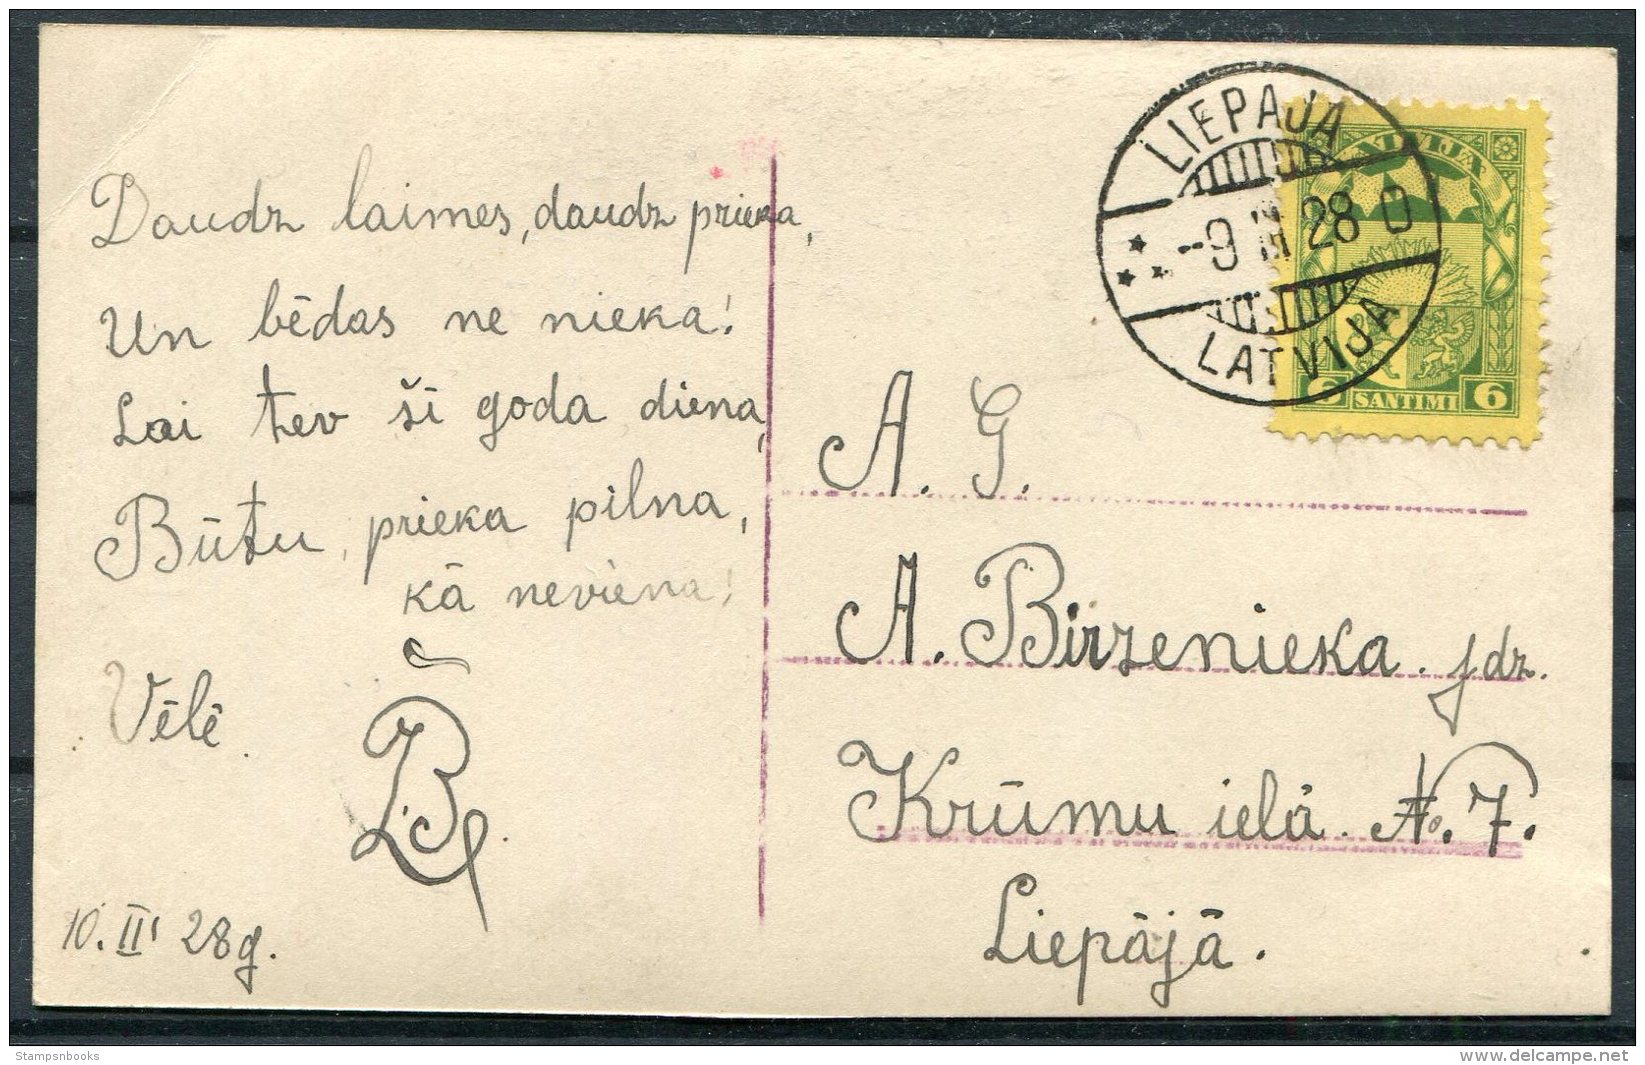 Daudz laimes, daudz prieka,
Un bēdas ne nieka!
Lai tev šī goda diena,
Būtu, prieka pilna,
kā neviena!
Vēlē
10. III 28 g.
LIEPAJA
-9 III 28 0
LATVIJA
LATVIJA
6 SANTIMI 6
A. G.
A. Birzenieka. jdz.
Krūmu ielā. №. 7.
Liepājā.
Stampsnbooks
www.delcampe.net